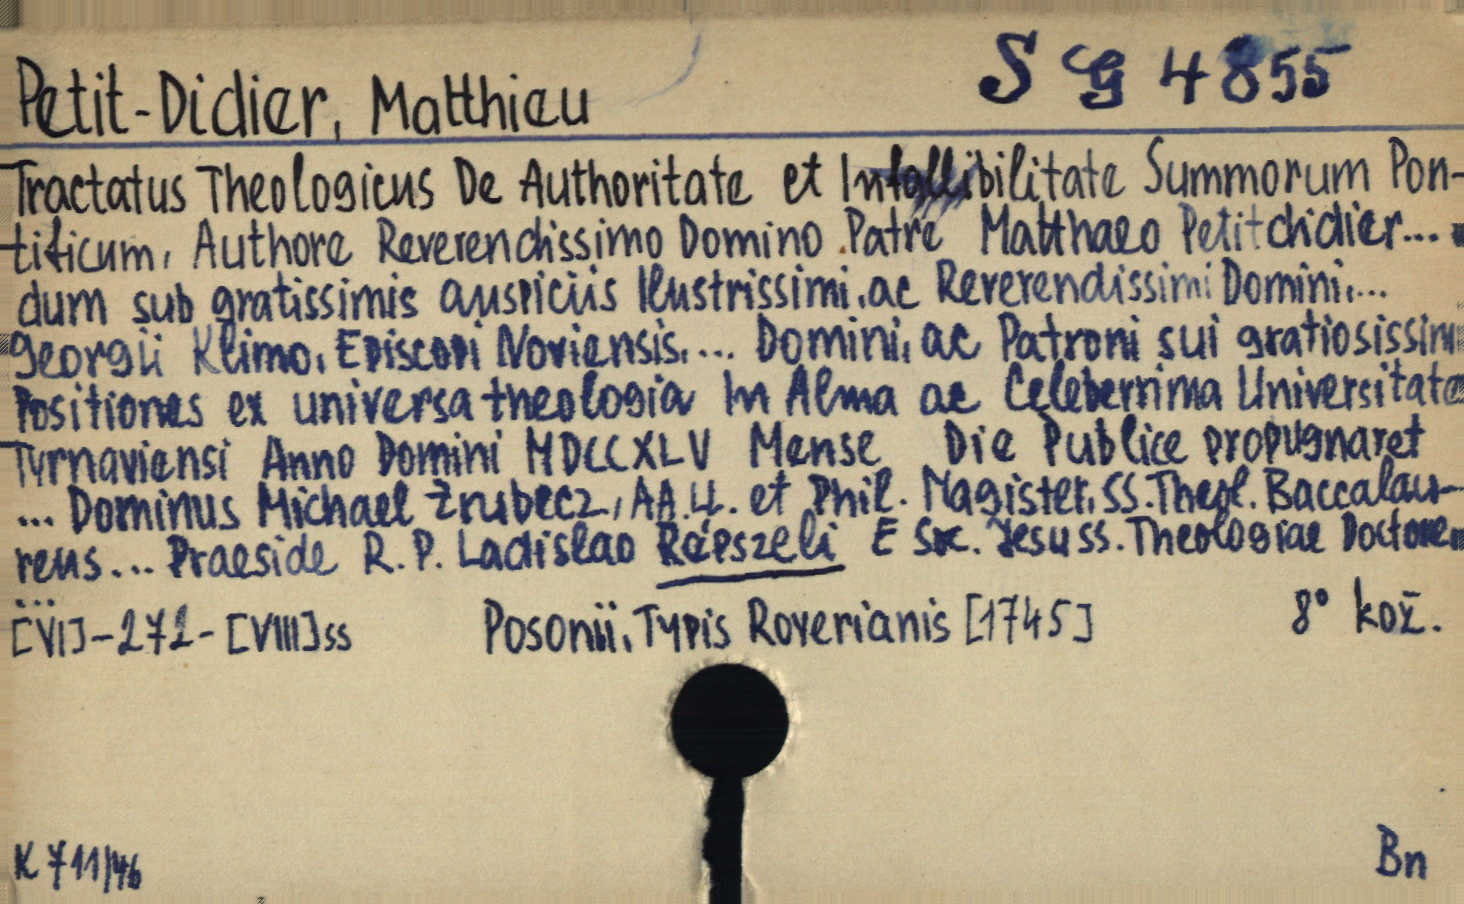 S G 4855
Petit-Didier, Matthieu
Tractatus Theologicus De Authoritate et Infallibilitate Summorum Pon-
tificum, Authore Reverendissimo Domino Patre Matthaeo Petitdidier...
dum sub gratissimis auspiciis Illustrissimi, ac Reverendissimi Domini,...
Georgii Klimo, Episcopi Noviensis,... Domini, ac Patroni sui gratiosissimi
Positiones ex universa theologia In Alma ac Celeberrima Universitate
Tyrnaviensi Anno Domini MDCCXLV Mense Die Publice propugnaret
... Dominus Michael Žrubecz, AA.LL. et Phil. Magister, SS. Theol. Baccalau-
reus... Praeside R. P. Ladislao Répszeli E Soc. Jesu ss. Theologiae Doctore
...
[VI]-272-[VIII]ss Posonii, Typis Royerianis [1745] 8° kož.
K 711/46 Bn